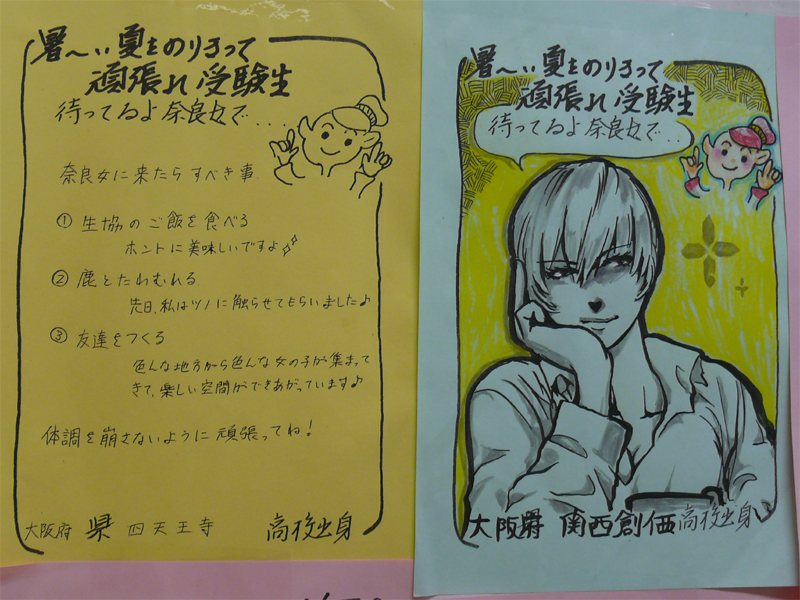 暑〜い夏をのりきって
頑張れ受験生
待ってるよ奈良女で...
奈良女に来たらすべき事
① 生協のご飯を食べる
ホントに美味しいですよ
② 鹿とたわむれる
先日、私はツノに触らせてもらいました♪
③ 友達をつくる
色んな地方から色んな女の子が集まって
きて、楽しい空間ができあがっています♪
体調を崩さないように頑張ってね!
大阪府 県 四天王寺 高校出身
暑〜い夏をのりきって
頑張れ受験生
待ってるよ奈良女で...
大阪府 関西創価高校出身